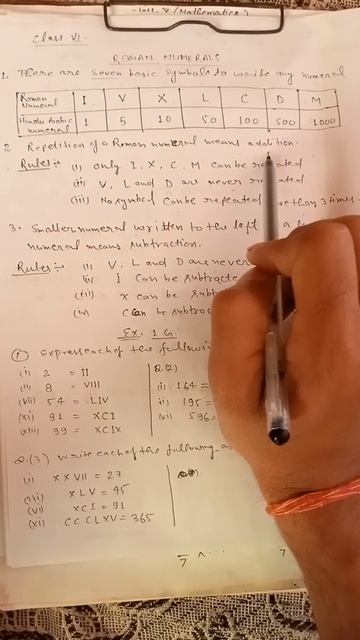 Class - V (Mathematics)
Class VI -
ROMAN NUMERALS
1. There are Seven basic Symbols to write any numeral
Roman Numeral I V X L C D M
Hindu Arabic numeral 1 5 10 50 100 500 1000
2. Repetition of a Roman numeral means addition.
Rules :- (i) only I, X, C, M can be repeated
(ii) V, L and D are never repeated
(iii) No symbol can be repeated more than 3 times.
3. Smaller numeral written to the left a
numeral means subtraction.
Rules :- (i) V, L and D are never
(ii) I can be subtracte
(iii) X can be subt
(iv) C can be subtrac
Ex. 1 G.
(i) Express each of the followi
(i) 2 = II
(ii) 8 = VIII
(vii) 54 = LIV
(xi) 91 = XCI
(xiii) 99 = XCIX
Q.(2)
(i) 164 =
ii) 195 =
(vi) 596 =
Q.(3) write each of the following a
(i) XXVII = 27
XLV = 45
(vi) XCI = 91
(xi) CCCLXV = 365
7 7